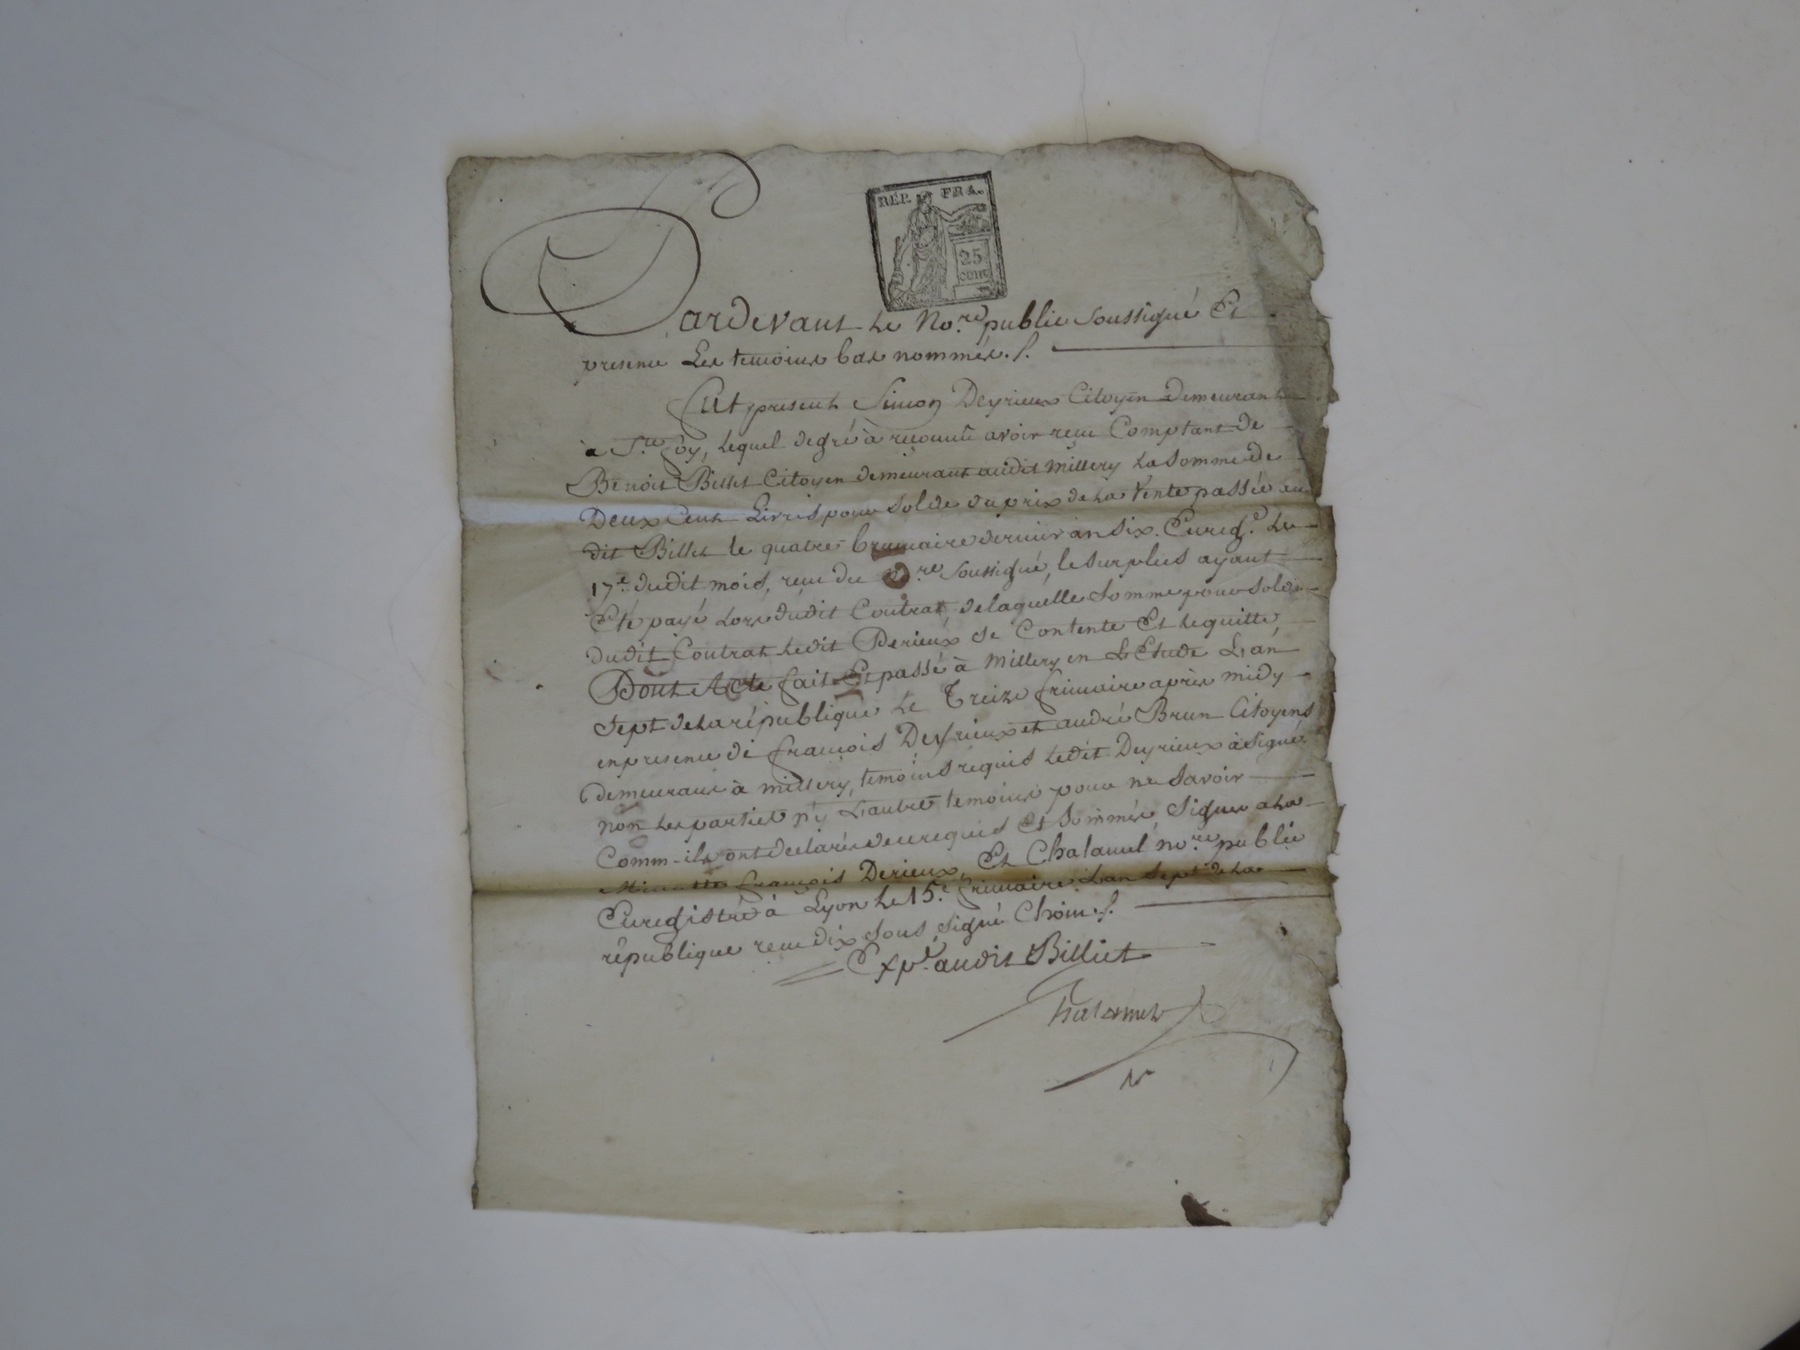 RÉP. FRA.
25
CENT.
Pardevant Le No.re public soussigné Et
presence Les temoins bas nommés./.
fut present Simon Deyrieux Citoyen Demeurant
a S.te foy, Lequel de gré à reconnu avoir recu Comptant de
Benoit Billet Citoyen demeurant audit Millery La Somme de
Deux Cent Livres pour solde du prix de La Vente passée au
dit Billet le quatre brumaire dernier an six. Enreg.é Le
17.e dudit mois, recu du no.re soussigné, le surplus ayant
Eté payé Lors dudit Contrat de laquelle somme pour solde
dudit Contrat Ledit Derieux se Contente Et Le quitte,
Dont Acte fait Et passé à Millery en L'Etude L'an
sept de La république Le Treize frimaire après midy
en presence de françois Deyrieux et andré Brun Citoyens
demeurant à millery, temoins requis Ledit Deyrieux à signé
non Les parties n'y L'autre temoins pour ne savoir
Comm-ils ont declarés de ce requis Et Sommés, Signés a La
Minutte françois Derieux, Et Chalamel no.re public
Enregistré à Lyon Le 15.e frimaire L'an sept de La
république recu dix sous, signé Choin./.
Exp.é audit Billiet
Chalamel